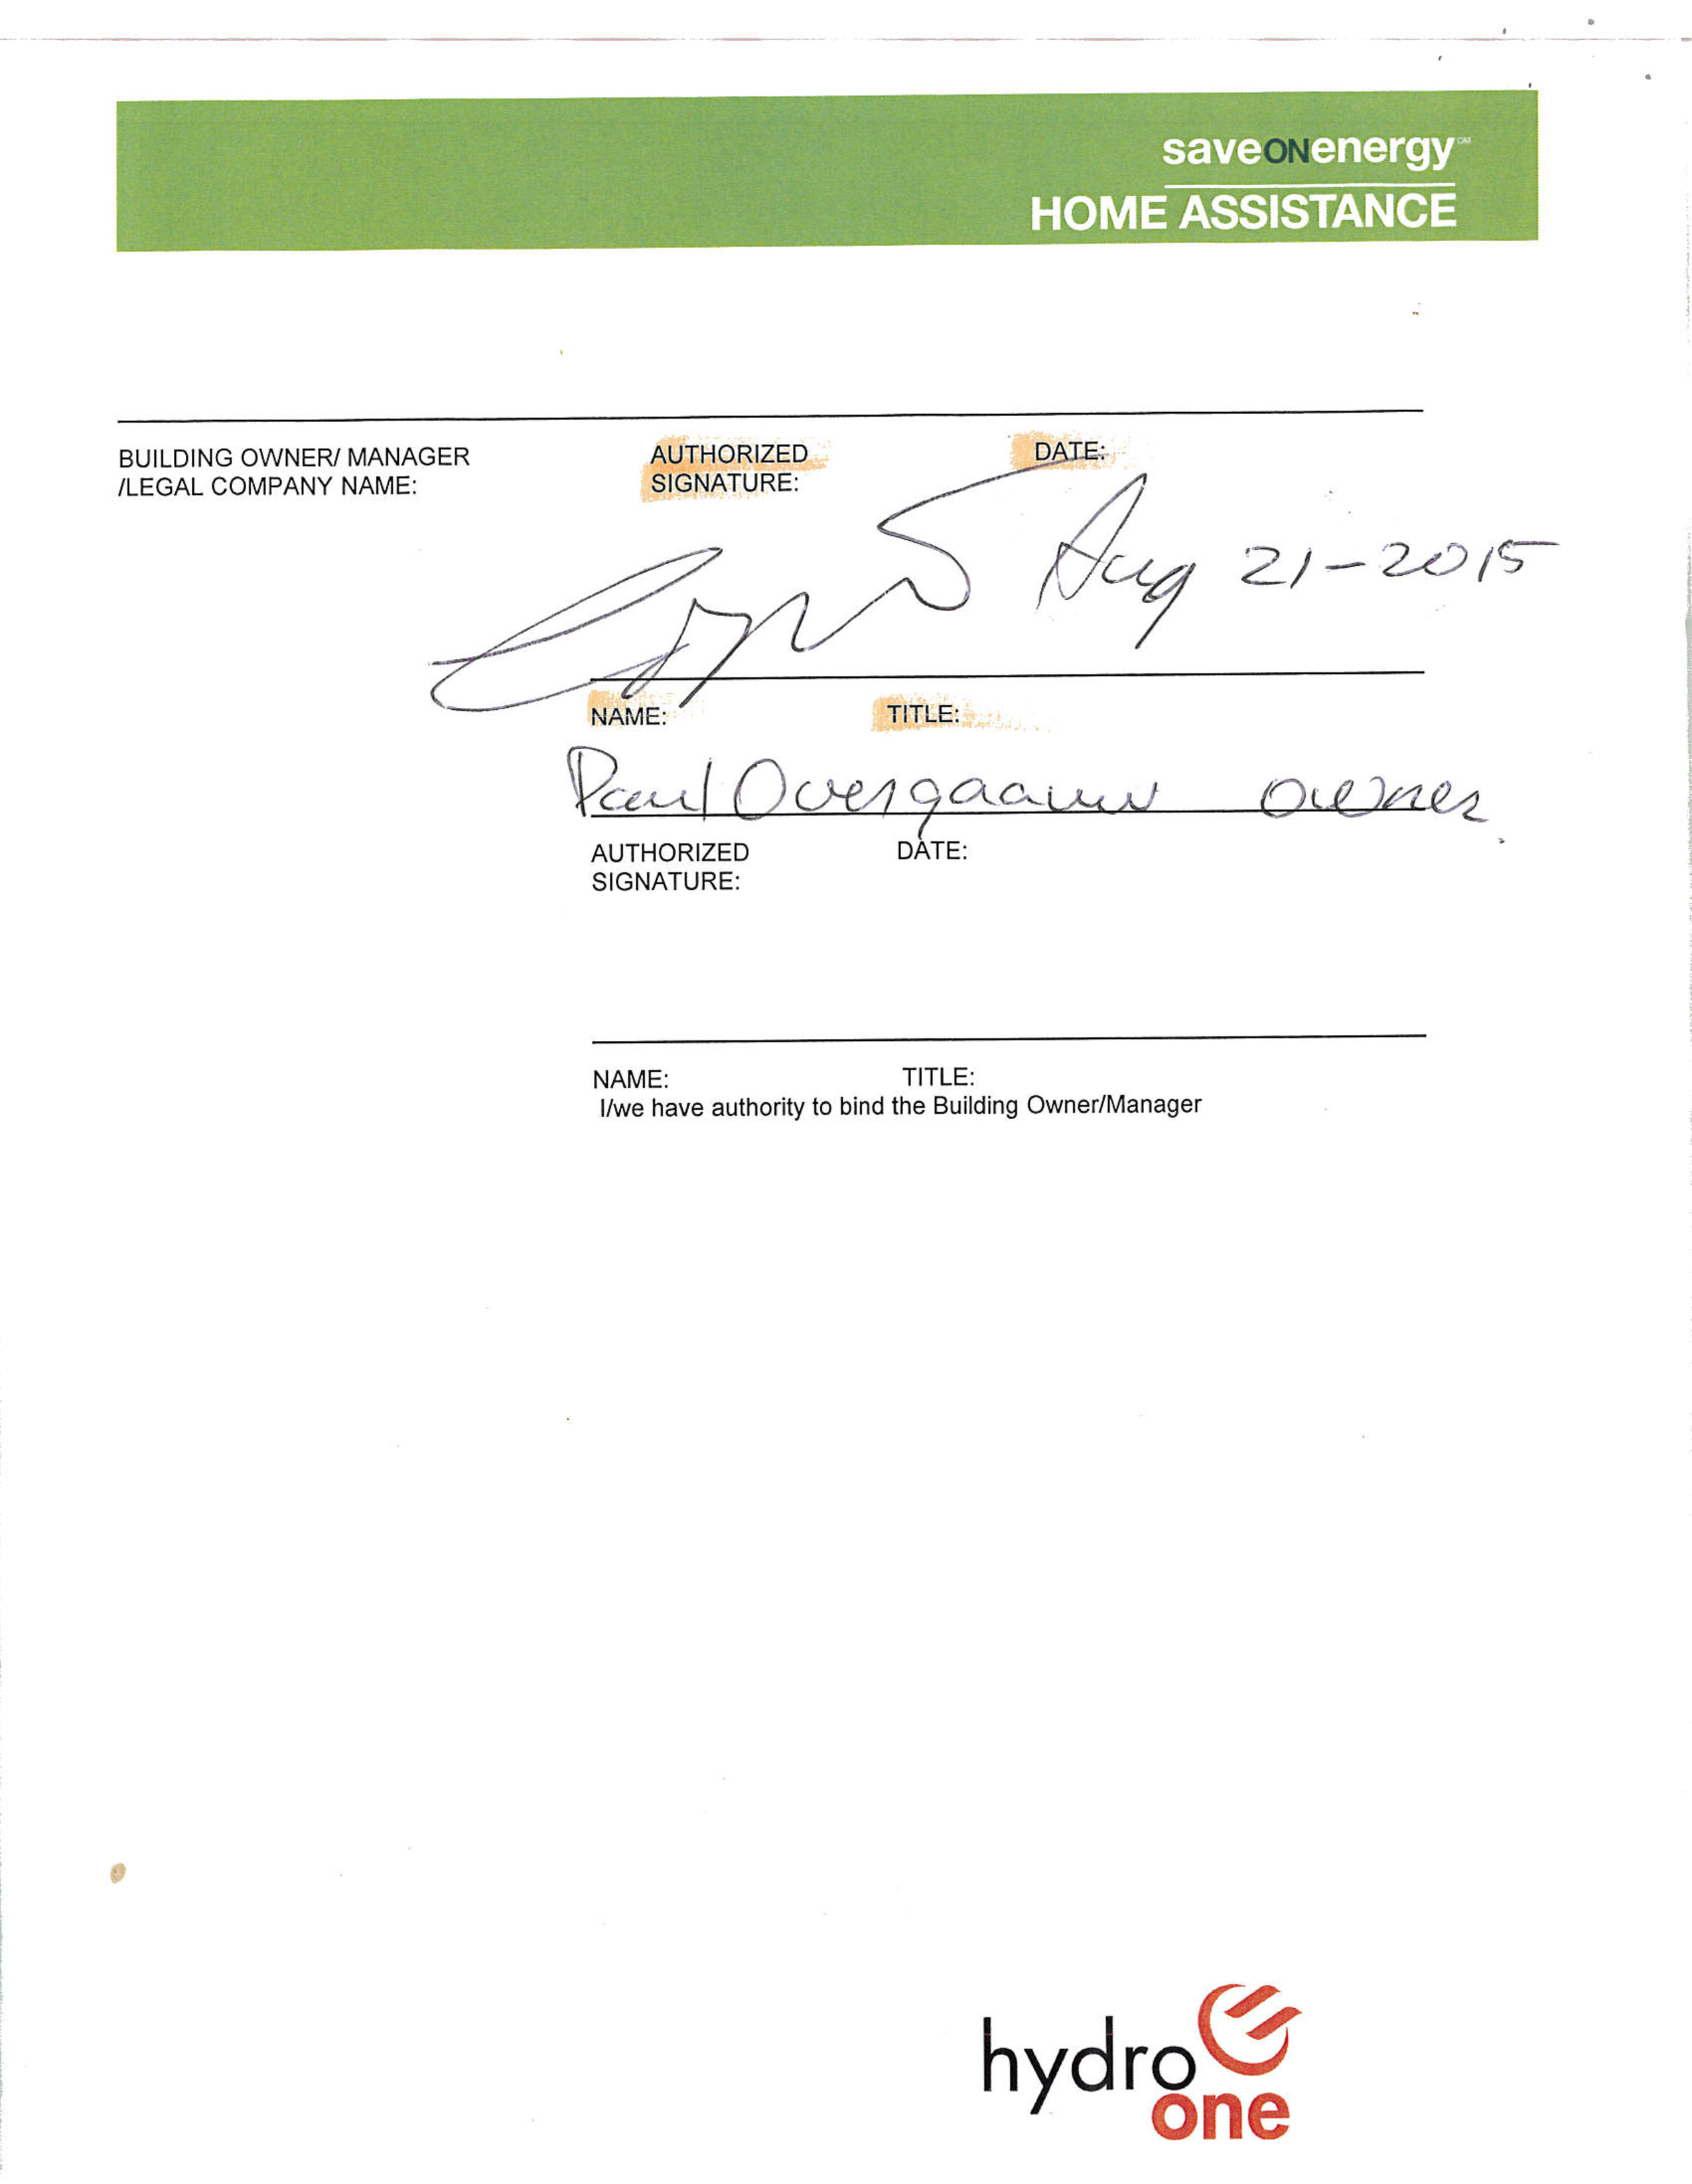 saveONenergy
HOME ASSISTANCE
BUILDING OWNER/ MANAGER
/LEGAL COMPANY NAME:
AUTHORIZED
SIGNATURE:
DATE:
Aug 21-2015
NAME: TITLE:
Paul Overgaauw owner
AUTHORIZED DATE:
SIGNATURE:
NAME: TITLE:
I/we have authority to bind the Building Owner/Manager
hydro
one